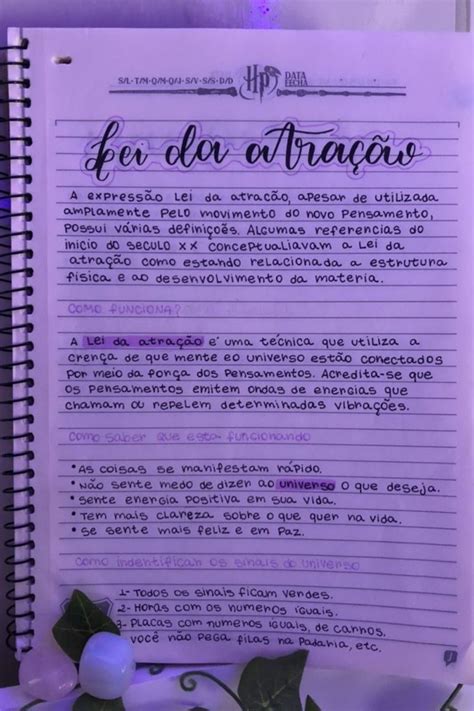 S/L·T/M·Q/M·Q/J·S/V·S/S·D/D HP DATA
FECHA
Lei da atração
A expressão Lei da atracão, apesar de utilizada
amplamente pelo movimento do novo pensamento,
possui várias definições. Algumas referencias do
inicio do seculo xx conceptualiavam a Lei da
atração como estando relacionada a estrutura
física e ao desenvolvimento da materia.
como funciona?
A Lei da atração é uma técnica que utiliza a
crença de que mente eo universo estão conectados
por meio da força dos pensamentos. Acredita-se que
os pensamentos emitem ondas de energias que
chamam ou repelem determinadas vibrações.
como saber que esta funcionando
• As coisas se manifestam rápido.
• Não sente medo de dizer ao universo o que deseja.
• sente energia positiva em sua vida.
• Tem mais clareza sobre o que quer na vida.
• Se sente mais feliz e em paz.
como indentificar os sinais do universo
1- Todos os sinais ficam verdes.
2- Horas com os numeros iguais.
3- Placas com numeros iguais, de carros.
você não pega filas na padaria, etc.